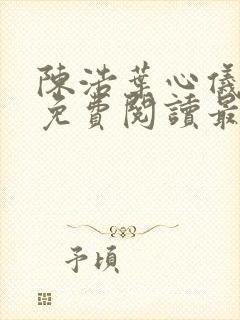 陳浩葉心儀
免費閱讀最
予頃